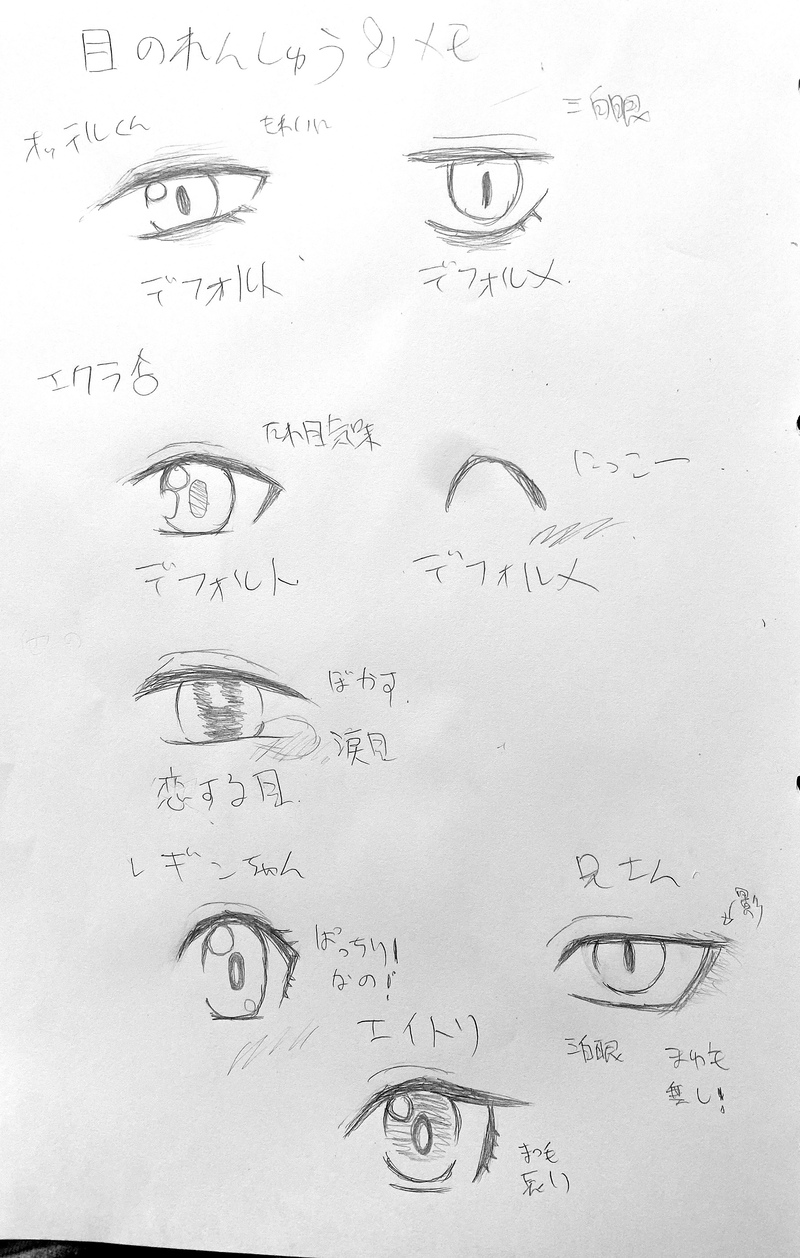 目のれんしゅう&メモ
オッテルくん
三白眼
デフォルト
デフォルメ
エクラ
たれ目気味
にっこー
デフォルト
デフォルメ
ぼかす
涙
恋する目
レギンちゃん
兄さん
影
ぱっちり!
なの!
エイトリ
三白眼
まつ毛
無し!
まつ毛
長い